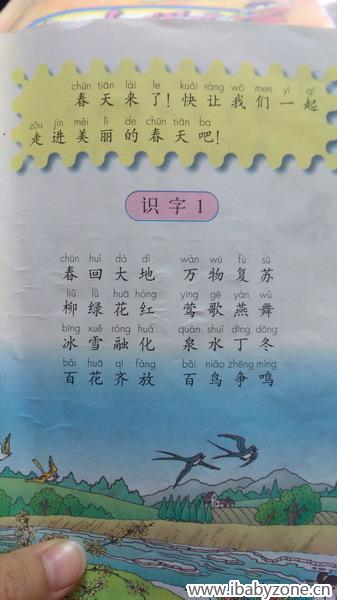 chūn tiān lái le kuài ràng wǒ men yì qǐ
春天来了！快让我们一起
zǒu jìn měi lì de chūn tiān ba
走进美丽的春天吧！
识字1
chūn huí dà dì wàn wù fù sū
春回大地 万物复苏
liǔ lǜ huā hóng yīng gē yàn wǔ
柳绿花红 莺歌燕舞
bīng xuě róng huà quán shuǐ dīng dōng
冰雪融化 泉水丁冬
bǎi huā qí fàng bǎi niǎo zhēng míng
百花齐放 百鸟争鸣
www.ibabyzone.cn